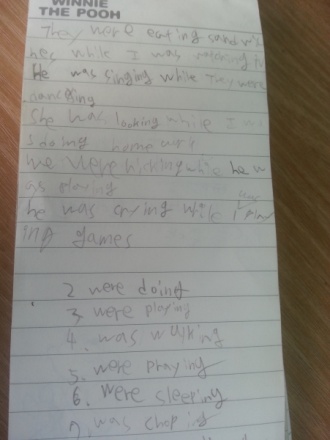 WINNIE
THE POOH
They were eating sandwi
hes while I was watching tv
He was singing while They were
dancing
She was looking while I wa
s doing homework
we were kicking while he w
as playing
he was crying while I play
ing games
2 were doing
3. were playing
4. was walking
5. were praying
6. were sleeping
7. was choping